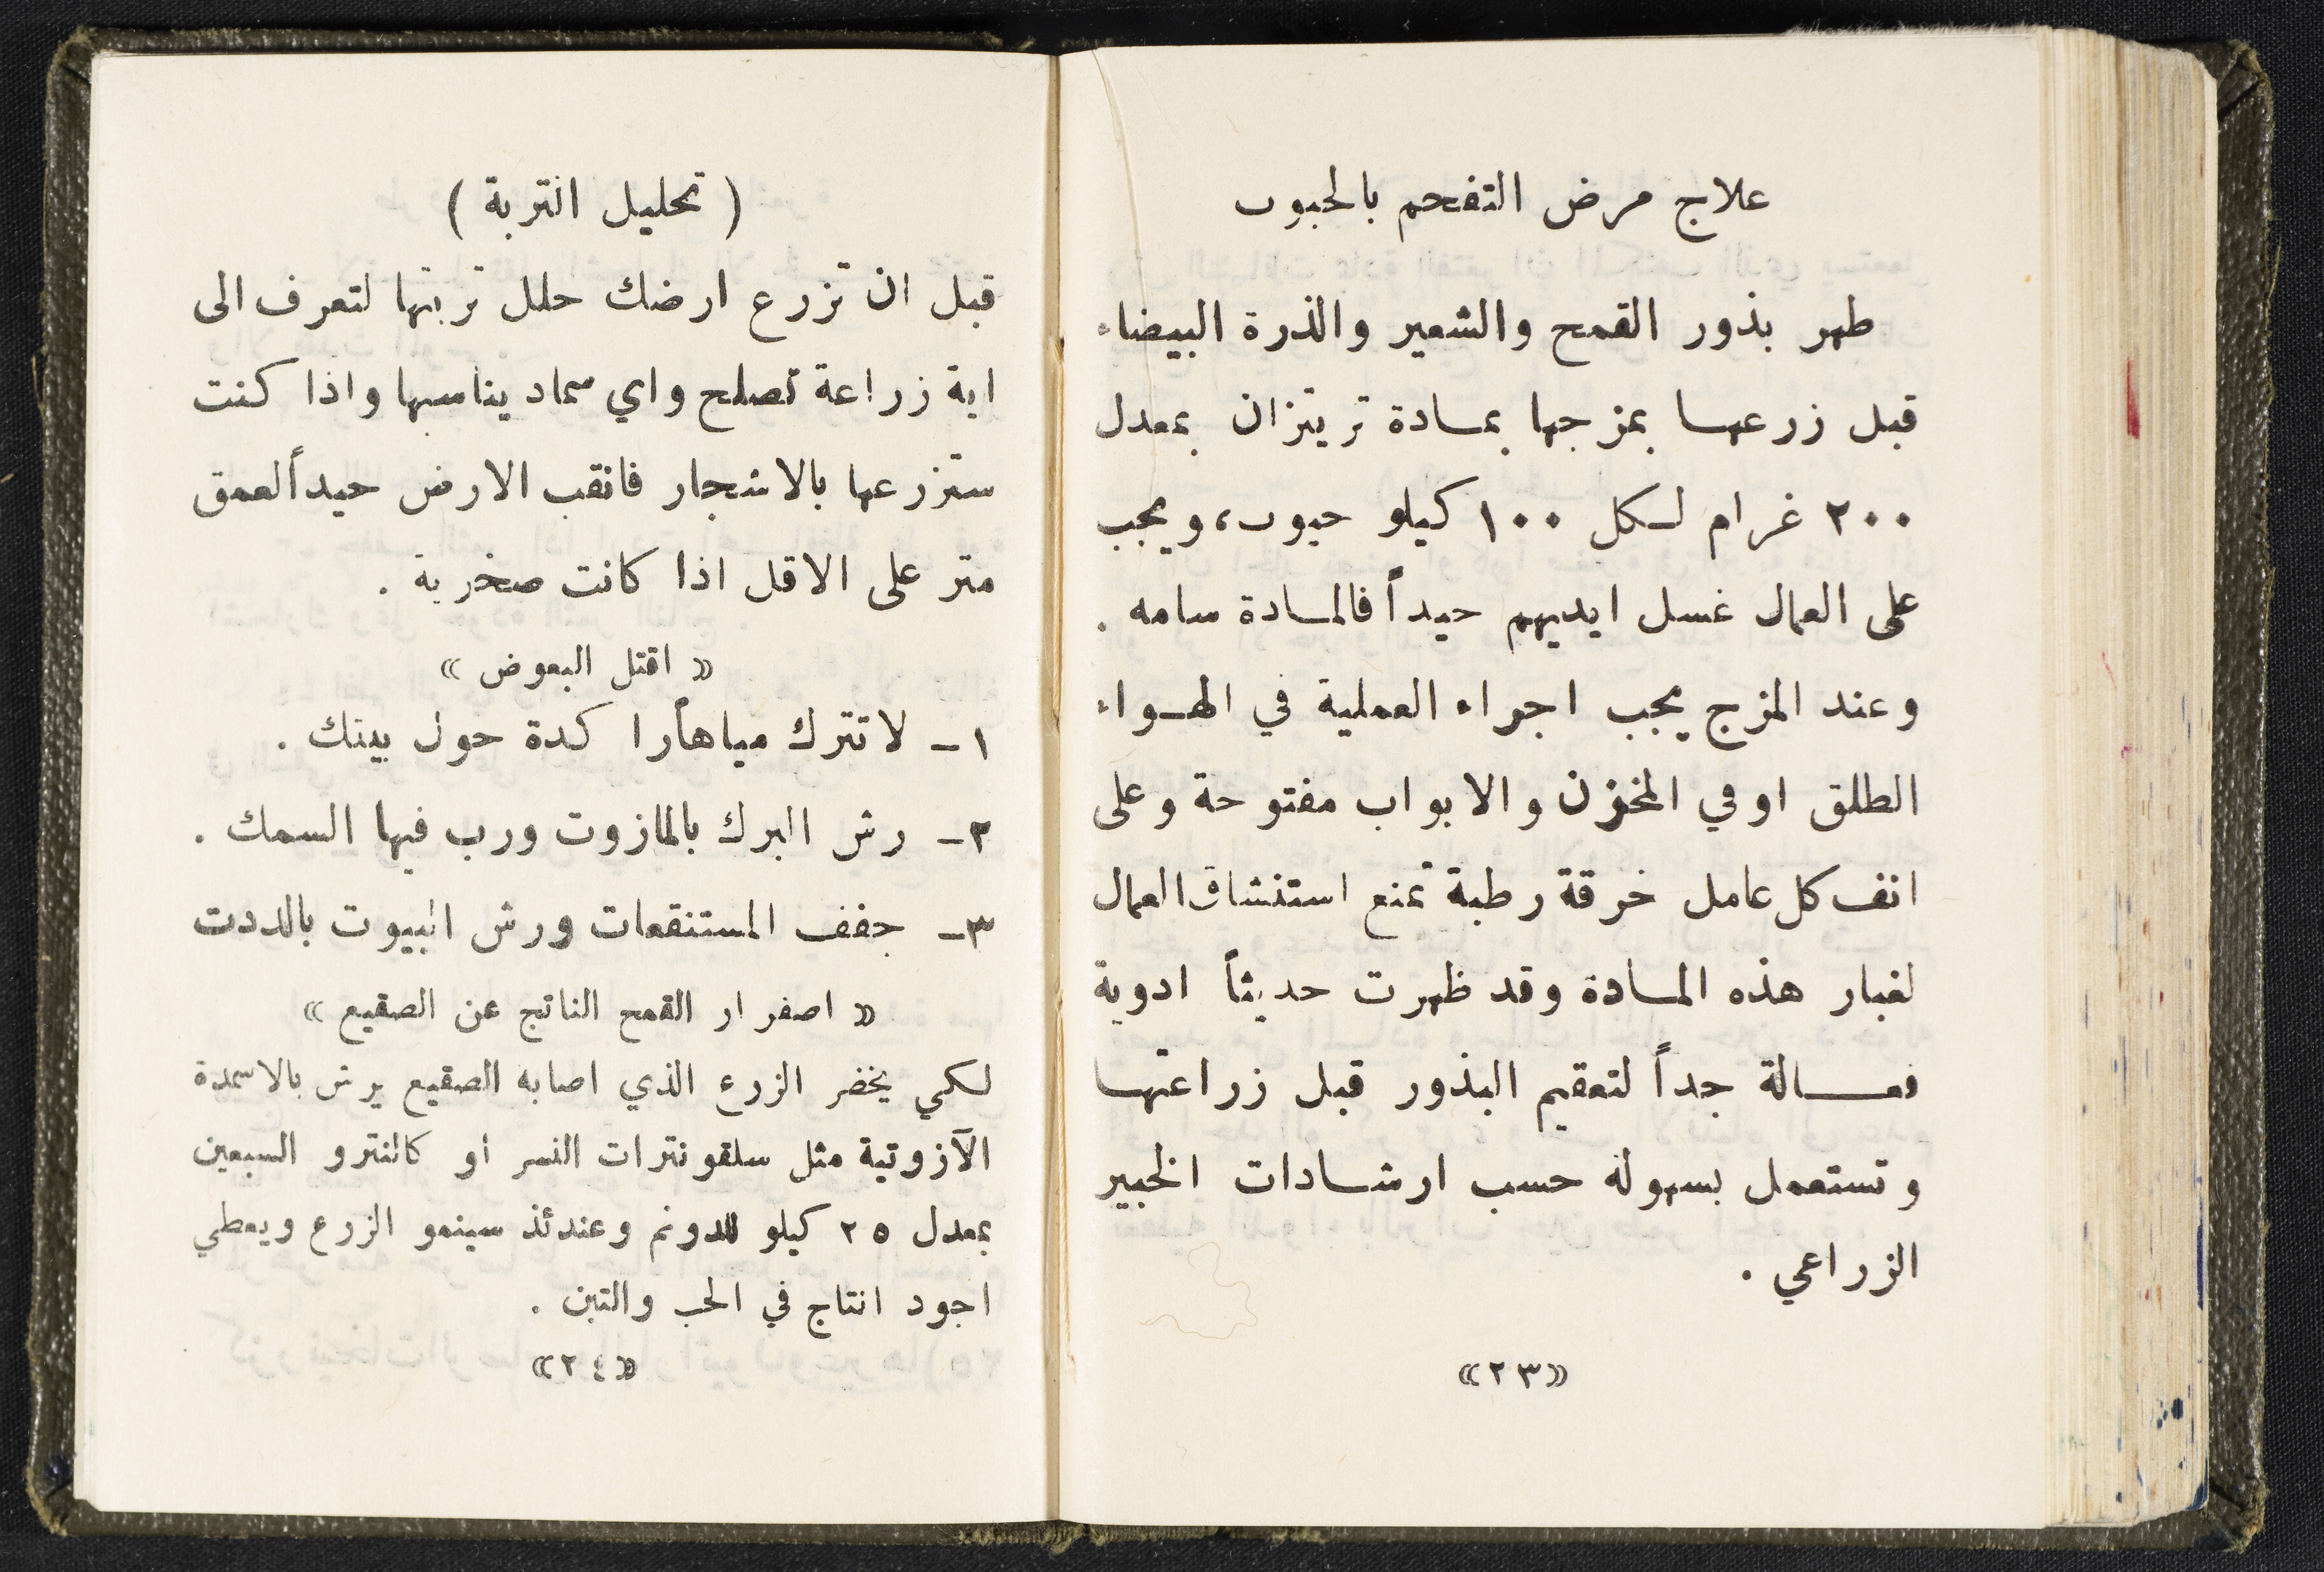 علاج مرض التفحم بالحبوب
طهر بذور القمح والشعير والذرة البيضاء
قبل زرعها بمزجها بمادة تريتزان بمعدل
٢٠٠ غرام لكل ١٠٠ كيلو حبوب، ويجب
على العمال غسل ايديهم جيداً فالمادة سامه .
وعند المزج يجب اجراء العملية في الهواء
الطلق او في المخزن والابواب مفتوحة وعلى
انف كل عامل خرقة رطبة تمنع استنشاق العمال
لغبار هذه المادة وقد ظهرت حديثاً ادوية
فعالة جداً لتعقيم البذور قبل زراعتها
وتستعمل بسهولة حسب ارشادات الخبير
الزراعي .
«٢٣»
( تحليل التربة )
قبل ان تزرع ارضك حلل تربتها لتعرف الى
اية زراعة تصلح واي سماد يناسبها واذا كنت
ستزرعها بالاشجار فانقب الارض جيداً لعمق
متر على الاقل اذا كانت صخرية .
« اقتل البعوض »
١ـ لا تترك مياهاً راكدة حول بيتك .
٢ـ رش البرك بالمازوت ورب فيها السمك .
٣ـ جفف المستنقعات ورش البيوت بالددت
« اصفرار القمح الناتج عن الصقيع »
لكي يخضر الزرع الذي اصابه الصقيع يرش بالاسمدة
الآزوتية مثل سلفونترات النسر أو كالنترو السبعين
بمعدل ٢٥ كيلو للدونم وعندئذ سينمو الزرع ويعطي
اجود انتاج في الحب والتبن .
«٢٤»